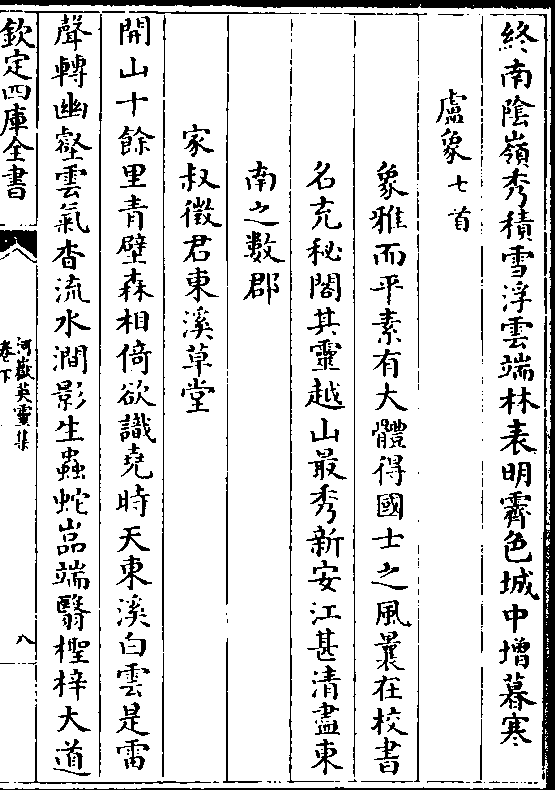 終南陰嶺秀積雪浮雲端林表明霽色城中增暮寒
盧象七首
象雅而平素有大體得國士之風曩在校書
名充秘閣其靈越山最秀新安江甚清盡東
南之數郡
家叔徵君東溪草堂
開山十餘里青壁森相倚欲識堯時天東溪白雲是雷
聲轉幽壑雲氣杳流水澗影生蟲蛇嵓端翳檉梓大道
欽定四庫全書
河嶽英靈集
卷下
八